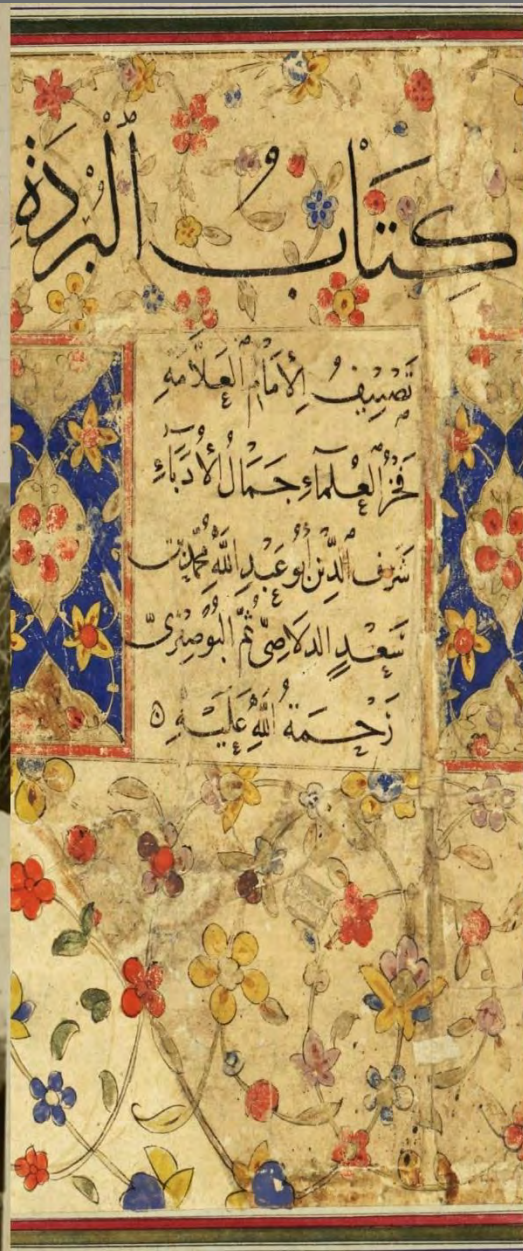 كِتَابُ الْبُرْدَةِ
تَصْنِيفُ الإِمَامِ العَلَّامَةِ
فَخْرُ العُلَمَاءِ جَمَالُ الأُدَبَاءِ
شَرَف الدِّين أَبُو عَبْدِ اللَّهِ مُحَمَّد بن
سَعْدٍ الدلَاصِىّ ثُمَّ البُوصِرِىّ
رَحْمَةُ اللَّهِ عَلَيْهِ